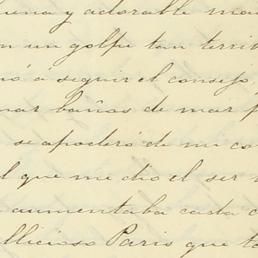 buena y adorable mad
n un golpe tan terrib
ó á seguir el consejo
mar baños de mar p
se apoderó de mi co
l que me dió el ser
aumentaba cada
llicioso Paris que to